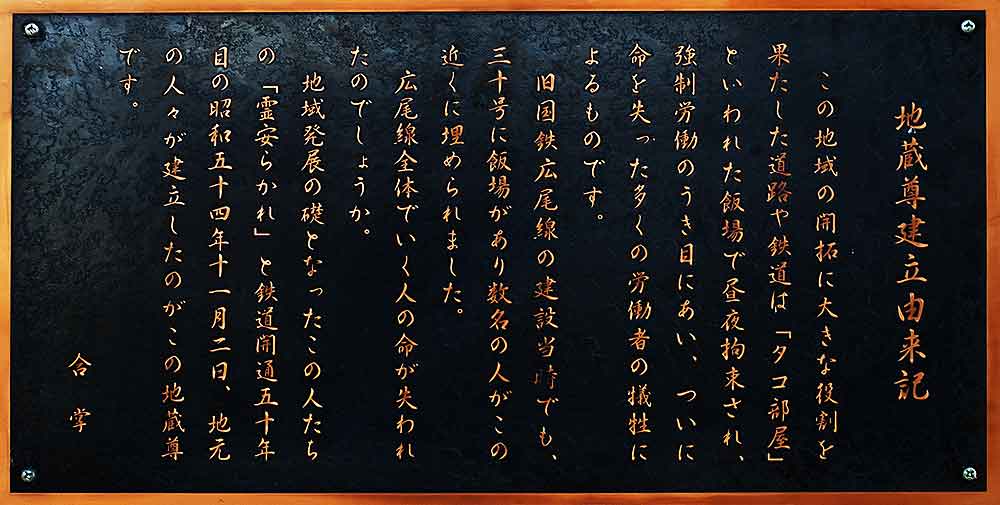 地蔵尊建立由来記
この地域の開拓に大きな役割を
果たした道路や鉄道は「タコ部屋」
といわれた飯場で昼夜拘束され、
強制労働のうき目にあい、ついに
命を失った多くの労働者の犠牲に
よるものです。
旧国鉄広尾線の建設当時でも、
三十号に飯場があり数名の人がこの
近くに埋められました。
広尾線全体でいく人の命が失われ
たのでしょうか。
地域発展の礎となったこの人たち
の「霊安らかれ」と鉄道開通五十年
目の昭和五十四年十一月二日、地元
の人々が建立したのがこの地蔵尊
です。
合掌